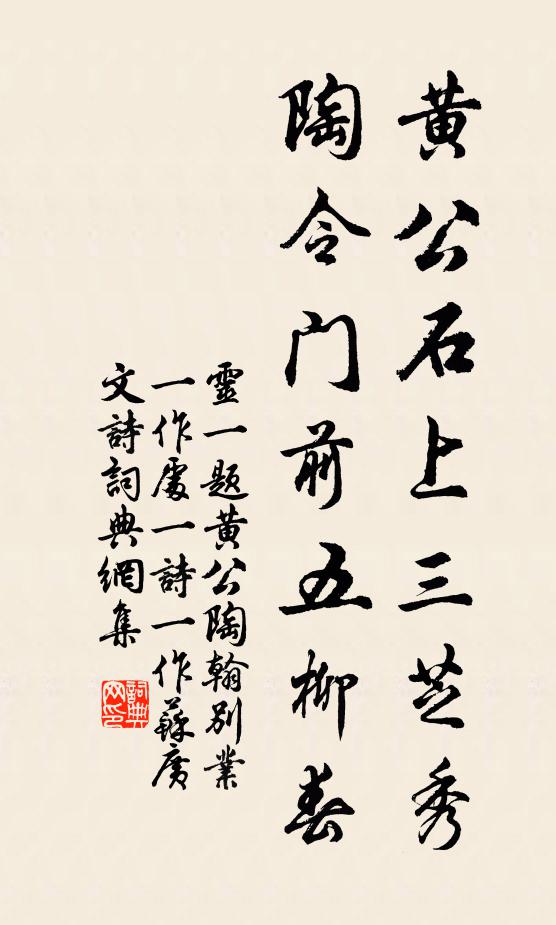 黄公石上三芝秀
陶令门前五柳春
靈一題黄公陶翰别業
一作處一詩一作蘇廣
文詩詞典網集
詞典网印